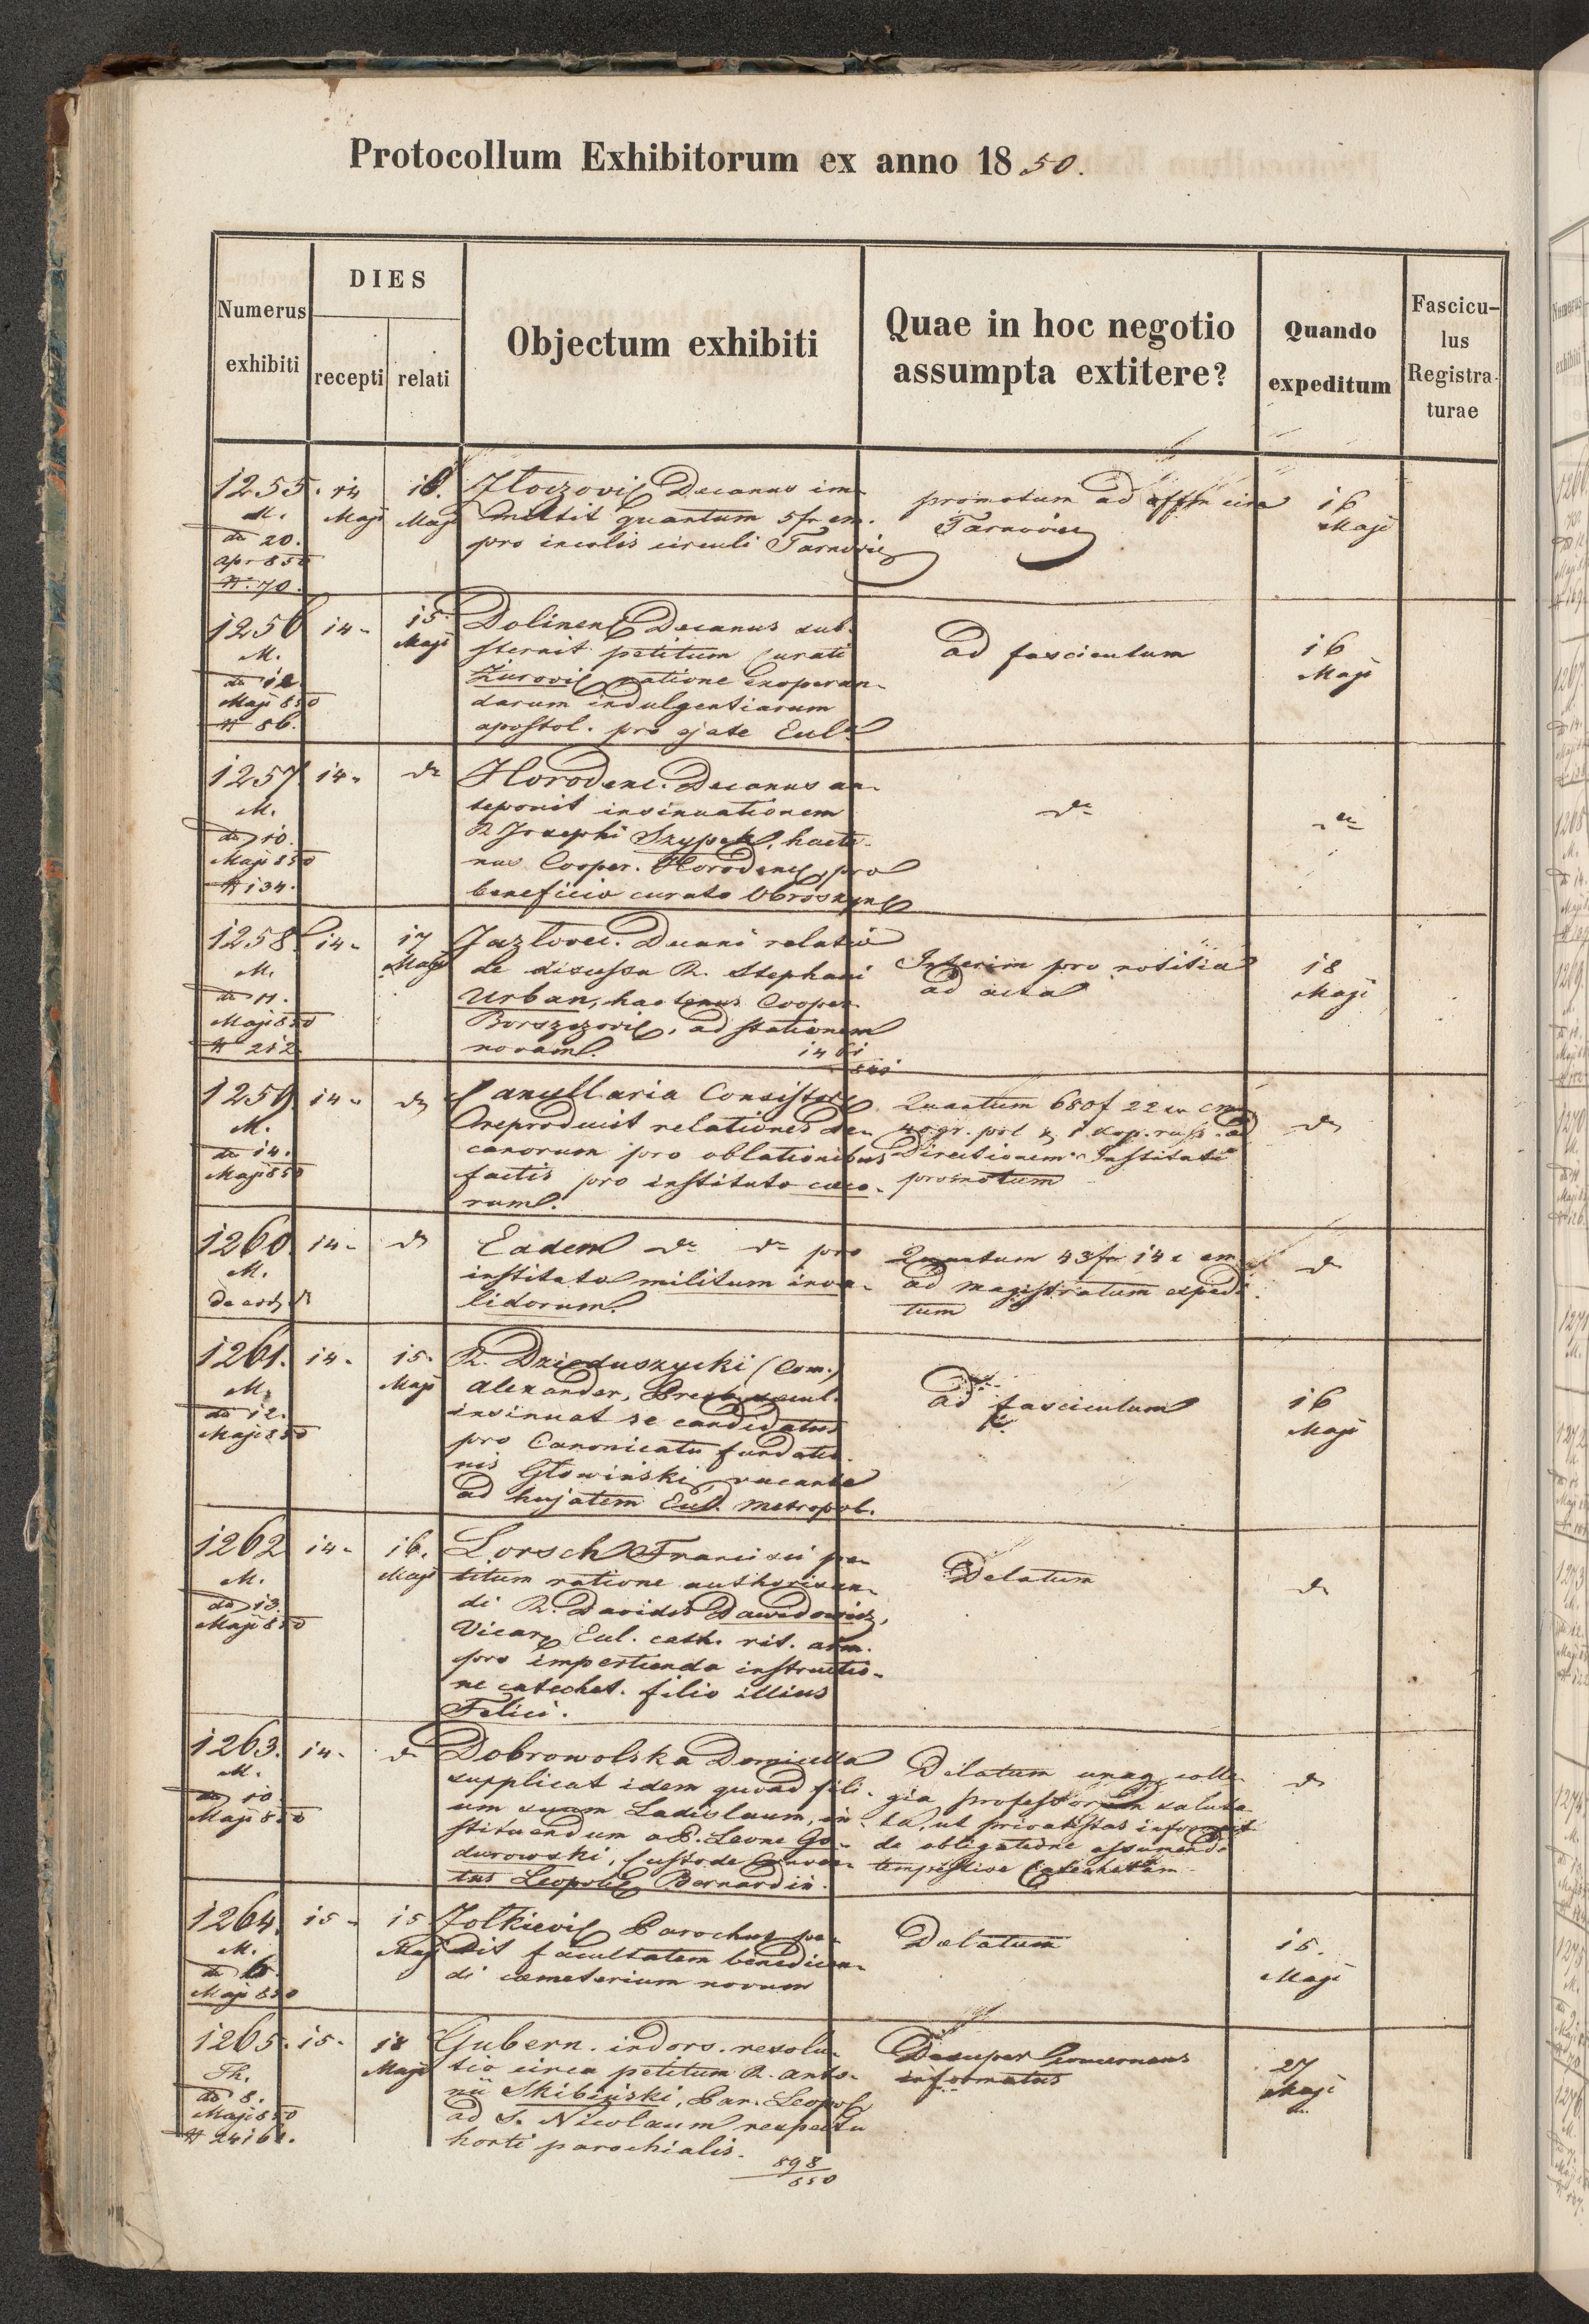 Protocollum Exhibitorum ex anno 1850.
Numerus
exhibiti
DIES
recepti
relati
Objectum exhibiti
Quae in hoc negotio
assumpta extitere?
Quando
expeditum
Fascicu-
lus
Registra-
turae
1255.
M.
do 20.
apr 850
N. 70.
14
Maji
16.
Maji
Złoczovic Decanus im-
mittit quantum 5 fr cm.
pro incolis circuli Tarnovic
promotum ad
Tarnovic
16
Maji
1256
M.
do 12
Maji 850
N 86.
14 -
15
Maji
Dolinen Decanus sub-
sternit petitum Curati
Żurovic ratione exoperan-
darum indulgentiarum
apostol. pro ejate Eccl.
ad fasciculum
16
Maji
1257
M.
do 10.
Maji 850
N 134.
14 -
do
Horodenc. Decanus an-
teponit insinuationem
R Josephi Szypek, hacte-
nus Cooper. Horodenc, pro
beneficio curato Obroszyn
do
do
1258
M.
do 11.
Maji 850
N 212
14 -
17
Maji
Jazlovec. Decani relatio
de discessu R. Stephani
Urban, hactenus Cooper.
Borszczovic, ad stationem
novam.
Interim pro notitia
ad acta
18
Maji
1259
M.
do 14.
Maji 850
14 -
do
Cancellaria Consistor
reproducit relationes de-
canorum pro oblationibus
factis pro instituto coeco-
rum.
Quantum 680 f 22 cm
gr. pol & 1 kop. russ. ad
Directionem Instituti
promotum
do
1260
M.
14 -
do
Eadem do do pro
instituto militum inva-
lidorum.
Quantum 43 fr 14 cm
ad Magistratum expedi-
tum
do
1261.
M.
do 12.
Maji 850
14 -
15.
Maji
R. Dzieduszycki (Com.)
Alexander, Presb. saecul.
insinuat se candidatus
pro Canonicatu fundatio-
nis Głowiński, vacante
ad hujatem Eccl. Metropol.
ad fasciculum
16
Maji
1262
M.
do 13.
Maji 850
14 -
16.
Maji
Lorsch Francisci pe-
titum ratione authorisan-
di R. Davidis Dawidowicz,
Vicar Eccl. cath. rit. arm.
pro impertienda instructio-
ne catechet. filio illius
Felici.
Delatum
do
1263.
M.
do 10
Maji 850
14 -
do
Dobrowolska Domicella
supplicat idem quoad fili-
um suum Ladislaum, in-
stituendum a P. Leone Go-
durowski, Custode Conven-
tus Leopol Bernardin.
Delatum unaq colle-
gia professorum saluta-
ta, ut privatistas informet
de obligatione assumendi
tempestive Catechetam
do
1264.
M.
Maji 850
15 -
15
Maji
Zolkievic Parochus pe-
tit facultatem benedicen-
di coemeterium novum
Delatum
15.
Maji
1265.
Th.
do 8.
Maji 850
N 24161.
15 -
18
Maji
Gubern. indors. resolu-
tio circa petitum R. Anto-
nii Skibiński, Par. Leopol
ad S. Nicolaum respectu
horti parochialis.
898
850
Desuper
informatus
27
Maji